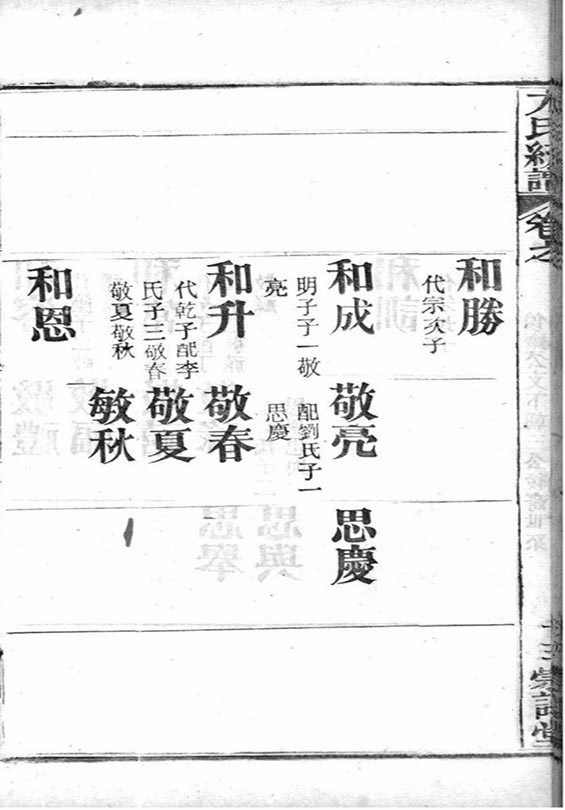 和勝
代宗次子
和成
明子子一敬
亮
敬亮
配劉氏子一
思慶
思慶
和升
代乾子配李
氏子三敬春
敬夏敬秋
敬春
敬夏
敏秋
和恩
氏續譜
卷之